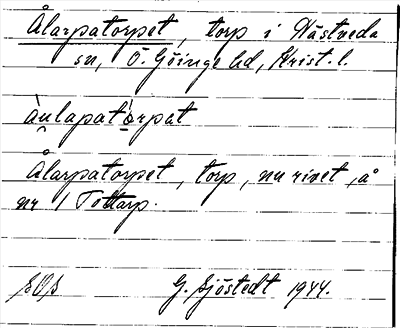 Ålarpatorpet, torp i Hästveda
sn, Ö. Göinge hd, Krist. l.
àu̯lapatò̱rpat
Ålarpatorpet, torp, nu rivet, å
nr 1 Tottarp.
G. Sjöstedt 1944.